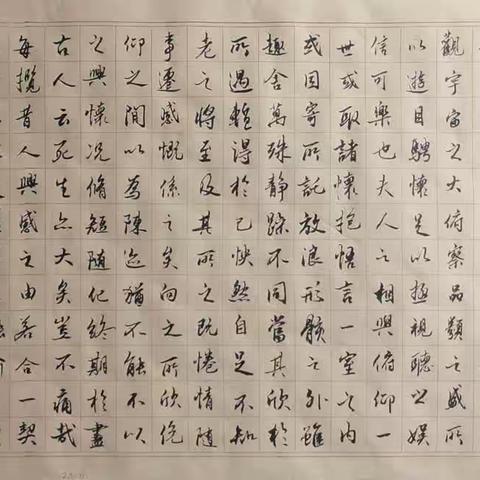 觀宇宙之大俯察品類之盛所
以遊目騁懷足以極視聽之娛
信可樂也夫人之相與俯仰一
世或取諸懷抱悟言一室之內
或因寄所託放浪形骸之外雖
趣舍萬殊靜躁不同當其欣於
所遇暫得於己怏然自足不知
老之將至及其所之既惓情隨
事遷感慨係之矣向之所欣俛
仰之間以為陳迹猶不能不以
之興懷況脩短隨化終期於盡
古人云死生亦大矣豈不痛哉
每攬昔人興感之由若合一契